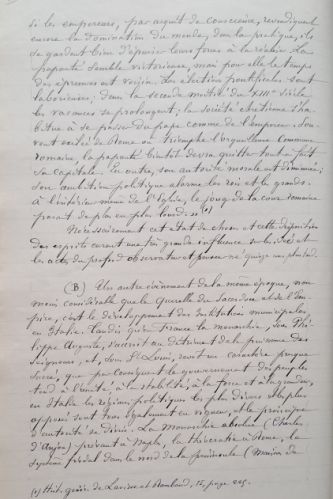 si les empereurs, par acquit de conscience, revendiquent
encore la domination du monde, dans la pratique, ils
se gardent bien d'épuiser leurs forces à la réaliser. La
papauté semble victorieuse, mais pour elle le temps
des épreuves est voisin. Les élections pontificales sont
laborieuses; dans la seconde moitié du XIIIe siècle
les vacances se prolongent; la société chrétienne s'ha-
bitue à se passer du pape comme de l'empereur. Sou-
vent exilée de Rome où triomphe l'orgueilleuse Commune
romaine, la papauté bientôt devra quitter tout à fait
sa capitale. En outre, son autorité morale est diminuée;
son ambition politique alarme les rois et les grands.
A l'intérieur même de l'Eglise, le joug de la cour romaine
parait de plus en plus lourd. » (1)
Nécessairement cet état de choses et cette disposition
des esprits eurent une très grande influence sur les idées et
les actes du profond observateur et penseur
(B) Un autre événement de la même époque, non
moins considérable que la Querelle du Sacerdoce et de l'Em-
pire, c'est le développement des institutions municipales
en Italie. Tandis qu'en France la monarchie, sous Phi-
lippe Auguste, s'accroit au détriment de la puissance des
Seigneurs, et, sous St Louis, revêt un caractère presque
sacré, que par conséquent le gouvernement des peuples
tend à l'unité, à la stabilité, à la force et à la grandeur,
en Italie les régimes politiques les plus divers et les plus
opposés sont tous également en vigueur, et le principe
d'autorité se divise. La Monarchie absolue (Charles
d'Anjou) prévaut à Naples, la théocratie à Rome, le
système féodal dans le nord de la péninsule (Maison de
(1) Hist. génér. de Lavisse et Rambaud, II, page 225.